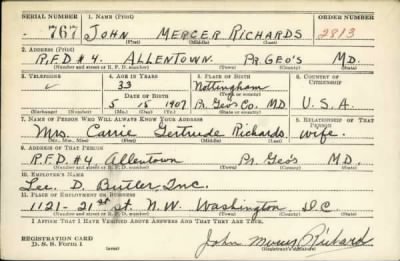 SERIAL NUMBER 1. NAME (Print) ORDER NUMBER
767 JOHN MERCER RICHARDS 2813
(First) (Middle) (Last)
2. ADDRESS (Print)
R.F.D #4. ALLENTOWN PR. GEO'S MD.
(Number and street or R. F. D. number) (Town) (County) (State)
3. TELEPHONE 4. AGE IN YEARS 5. PLACE OF BIRTH 6. COUNTRY OF CITIZENSHIP
33 Nottingham
DATE OF BIRTH (Town or county)
5 15 1907 Pr. Geo's Co. MD U.S.A.
(Exchange) (Number) (Mo.) (Day) (Yr.) (State or country)
7. NAME OF PERSON WHO WILL ALWAYS KNOW YOUR ADDRESS 8. RELATIONSHIP OF THAT PERSON
Mrs. Carrie Gertrude Richards. wife.
(Mr., Mrs., Miss) (First) (Middle) (Last)
9. ADDRESS OF THAT PERSON
R.F.D. #4 Allentown Pr. Geo's MD.
(Number and street or R. F. D. number) (Town) (County) (State)
10. EMPLOYER'S NAME
Lee. D. Butler Inc.
11. PLACE OF EMPLOYMENT OR BUSINESS
1121-21st St. N.W. Washington D.C.
(Number and street or R. F. D. number) (Town) (County) (State)
I AFFIRM THAT I HAVE VERIFIED ABOVE ANSWERS AND THAT THEY ARE TRUE.
REGISTRATION CARD
D. S. S. Form 1 John Mercer Richards
(Registrant's signature)